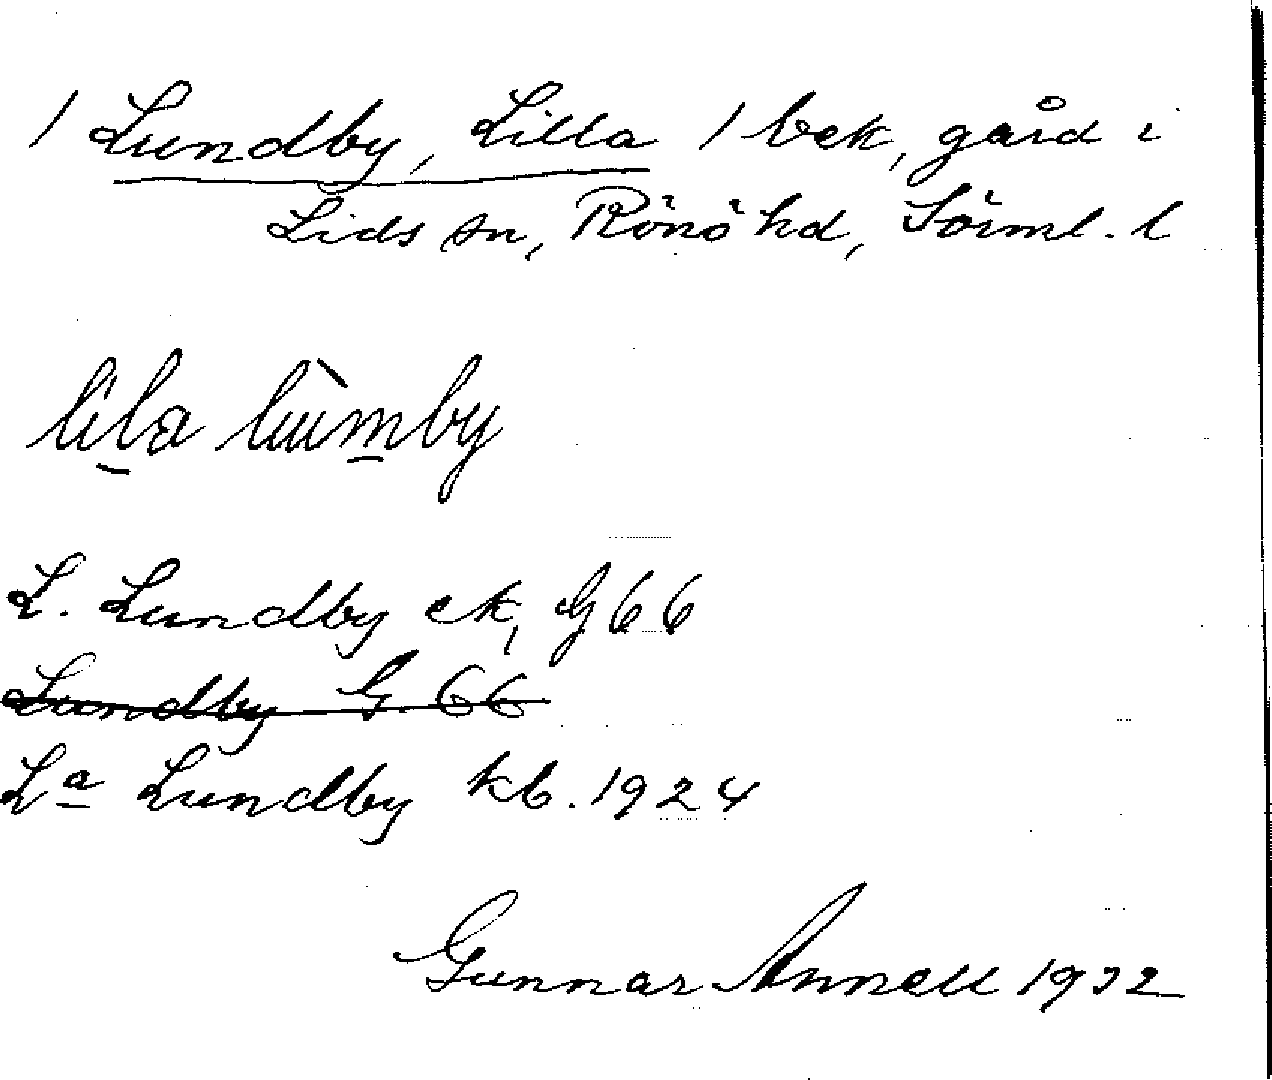 / Lundby, Lilla / bek, gård i
Lids sn, Rönö hd, Sörml. l
lila lùmby
L. Lundby ek, G 66
Lundby G 66
La Lundby kb. 1924
Gunnar Annell 1932